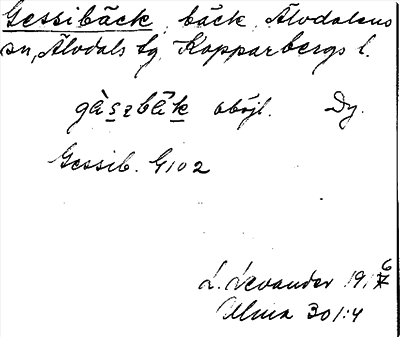 Gessibäck, bäck, Älvdalens
sn, Älvdals tg Kopparbergs l.
gàszbä̀k oböjl. Dy.
Gessib. G102
L. Levander 1916
Ulma 301:4